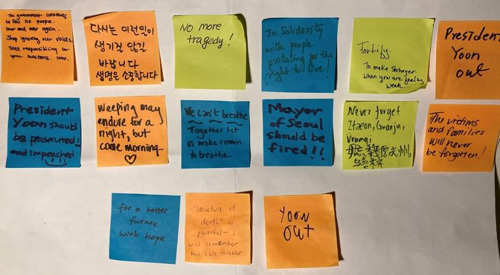 The government continues
to fail its people.
over and over again.
Stop your children.
Take responsibility for
your actions, now.
다시는 이런일이
생기지 않길
바랍니다
생명은 소중합니다
No more
tragedy!
In Solidarity
with people
protesting for the
right to live!
Fortify:
To make stronger
when you are feeling
weak.
President
Yoon
out
President
Yoon should
be prosecuted!
and impeached!
Weeping may
endure for a
night, but
come morning...
We can't breathe
Together let
us make room
to breathe.
Mayor
of Seoul
should be
fired!!
Never forget
Itaewon, Gwangju,
Urumqi
The victims
and families
will never
be forgotten!
for a better
future
with hope
death is
painful
will remember
forever
Yoon
OUT